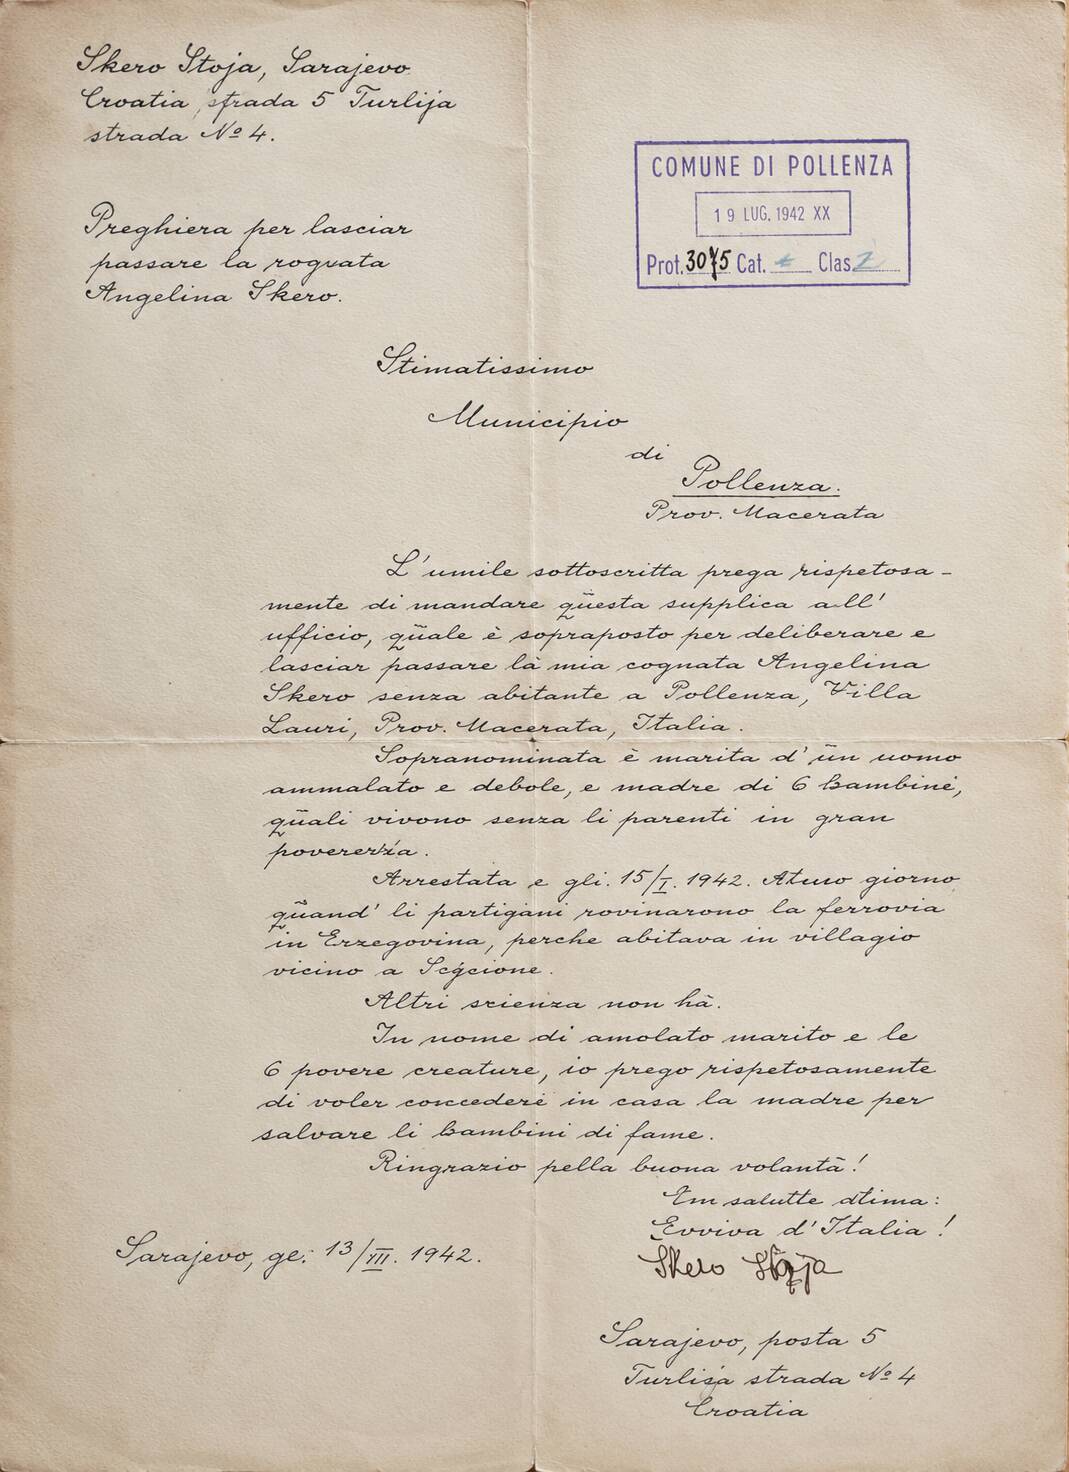 Skero Stoja, Sarajevo
Croatia, strada 5 Turlija
strada № 4.
COMUNE DI POLLENZA
19 LUG. 1942 XX
Prot. 3075 Cat. Clas 2
Preghiera per lasciar
passare la rognata
Angelina Skero.
Stimatissimo
Municipio
di
Pollenza.
Prov. Macerata
L'umile sottoscritta prega rispetosa-
mente di mandare qüesta supplica all'
ufficio, qüale è sopraposto per deliberare e
lasciar passare là mia cognata Angelina
Skero senza abitante a Pollenza, Villa
Lauri, Prov. Macerata, Italia.
Sopranominata è marita d'ün uomo
ammalato e debole, e madre di 6 bambine,
qüali vivono senza li parenti in gran
Arrestata e gli. 15/I. 1942. giorno
qüand' li partigani rovinarono la ferrovia
in Erzegovina, perche abitava in villagio
vicino a
Altri scienza non hà.
In nome di amolato marito e le
6 povere creature, io prego rispetosamente
di voler concedere in casa la madre per
salvare li bambini di fame.
Ringrazio pella buona volantà!
salutte
Evviva d'Italia!
Skero Stoja
Sarajevo, ge: 13/III. 1942.
Sarajevo, posta 5
Turlija strada № 4
Croatia